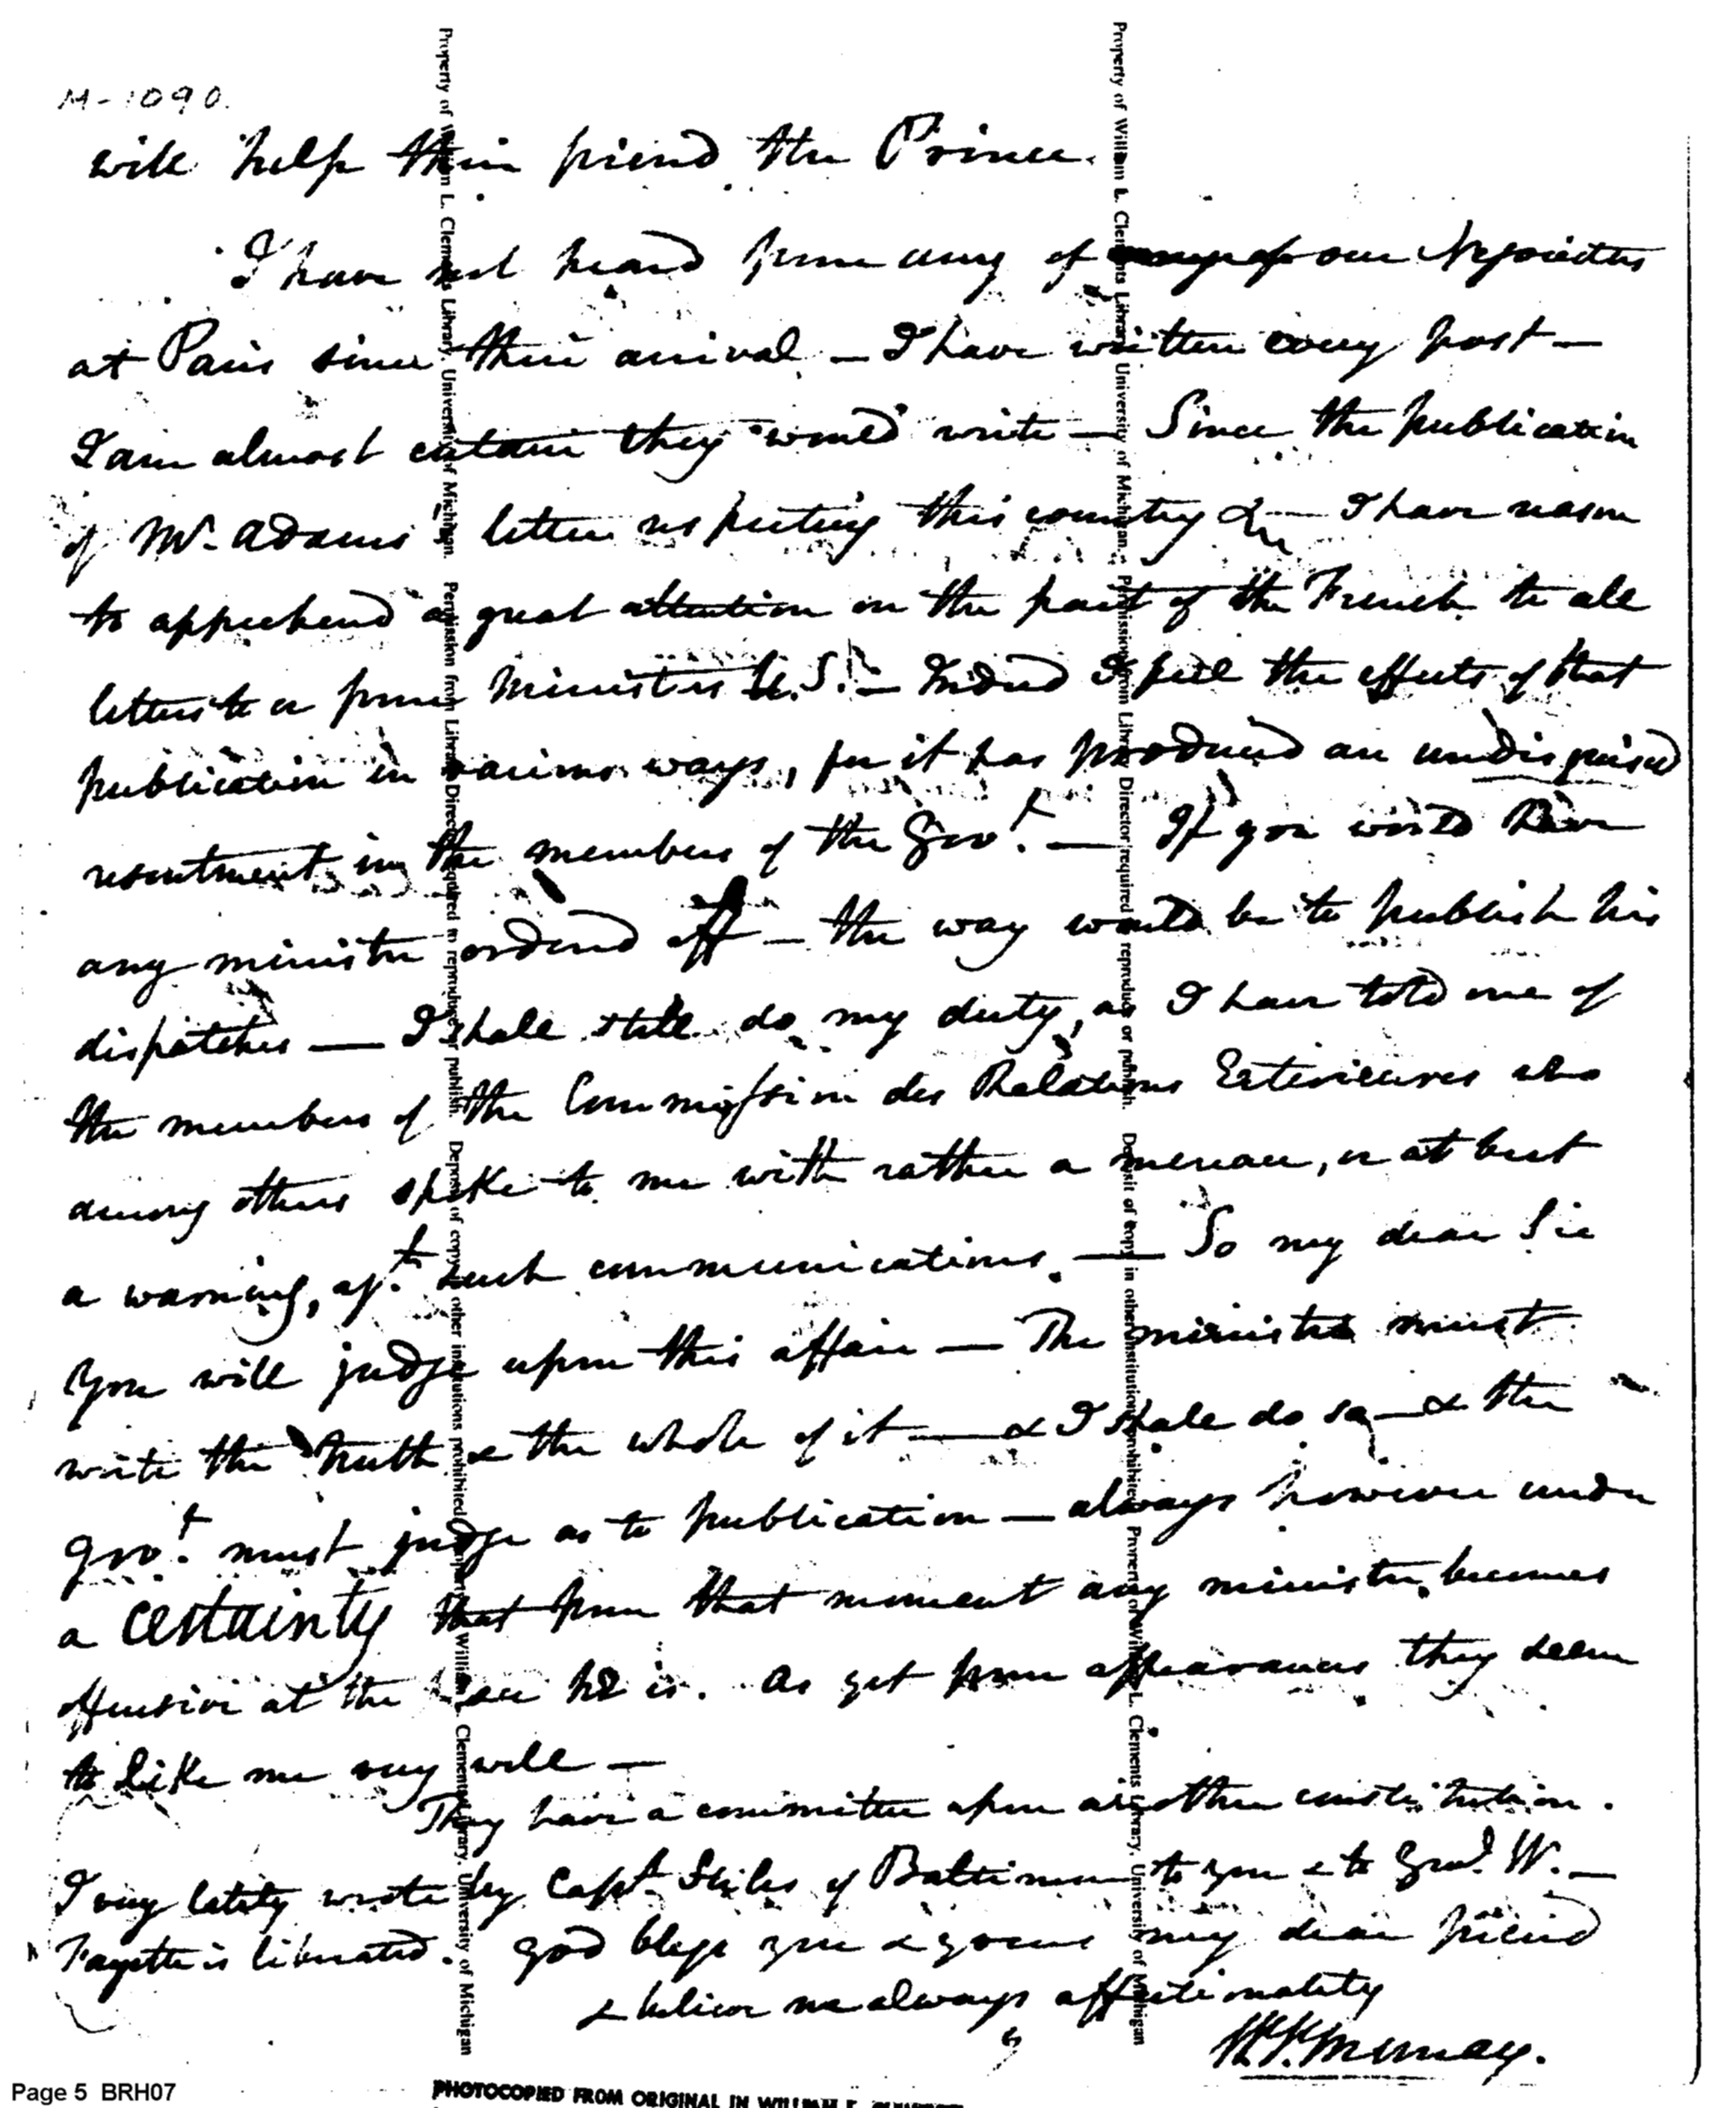 M-1090.
will help their friend the Prince.
I have not heard from any of our Negociators
at Paris since their arrival — I have written every post —
I am almost certain they would write — Since the publication
of Mr. Adams' letter respecting this country &c — I have reason
to apprehend a great attention on the part of the French to all
letters to or from Ministers U.S. — Indeed I feel the effects of that
publication in various ways, for it has produced an undisguised
resentment in the members of the Govt. — If you would have
any minister ordered off — the way would be to publish his
dispatches — I shall still do my duty, as I have told one of
the members of the Commission des Relations Exterieures who
among others spoke to me with rather a menace, or at best
a warning, agt. such communications. — So my dear Sir
you will judge upon this affair — The minister must
write the truth & the whole of it — & I shall do so — & the
Govt. must judge as to publication — always however under
a certainty that from that moment any minister becomes
offensive at the place he is. As yet from appearances they seem
to like me very well —
They have a committee upon another constitution.
I very lately wrote by Capt. Stiles of Baltimore to you & to Genl. W. —
Fayette is liberated. God bless you & yours my dear friend
& believe me always affectionately
W.V. Murray.
Property of William L. Clements Library, University of Michigan. Permission from Library Director required to reproduce or publish. Deposit of copy in other institutions prohibited. Property of William L. Clements Library, University of Michigan
Property of William L. Clements Library, University of Michigan. Permission from Library Director required to reproduce or publish. Deposit of copy in other institutions prohibited. Property of William L. Clements Library, University of Michigan
Page 5 BRH07
PHOTOCOPIED FROM ORIGINAL IN WILLIAM L.